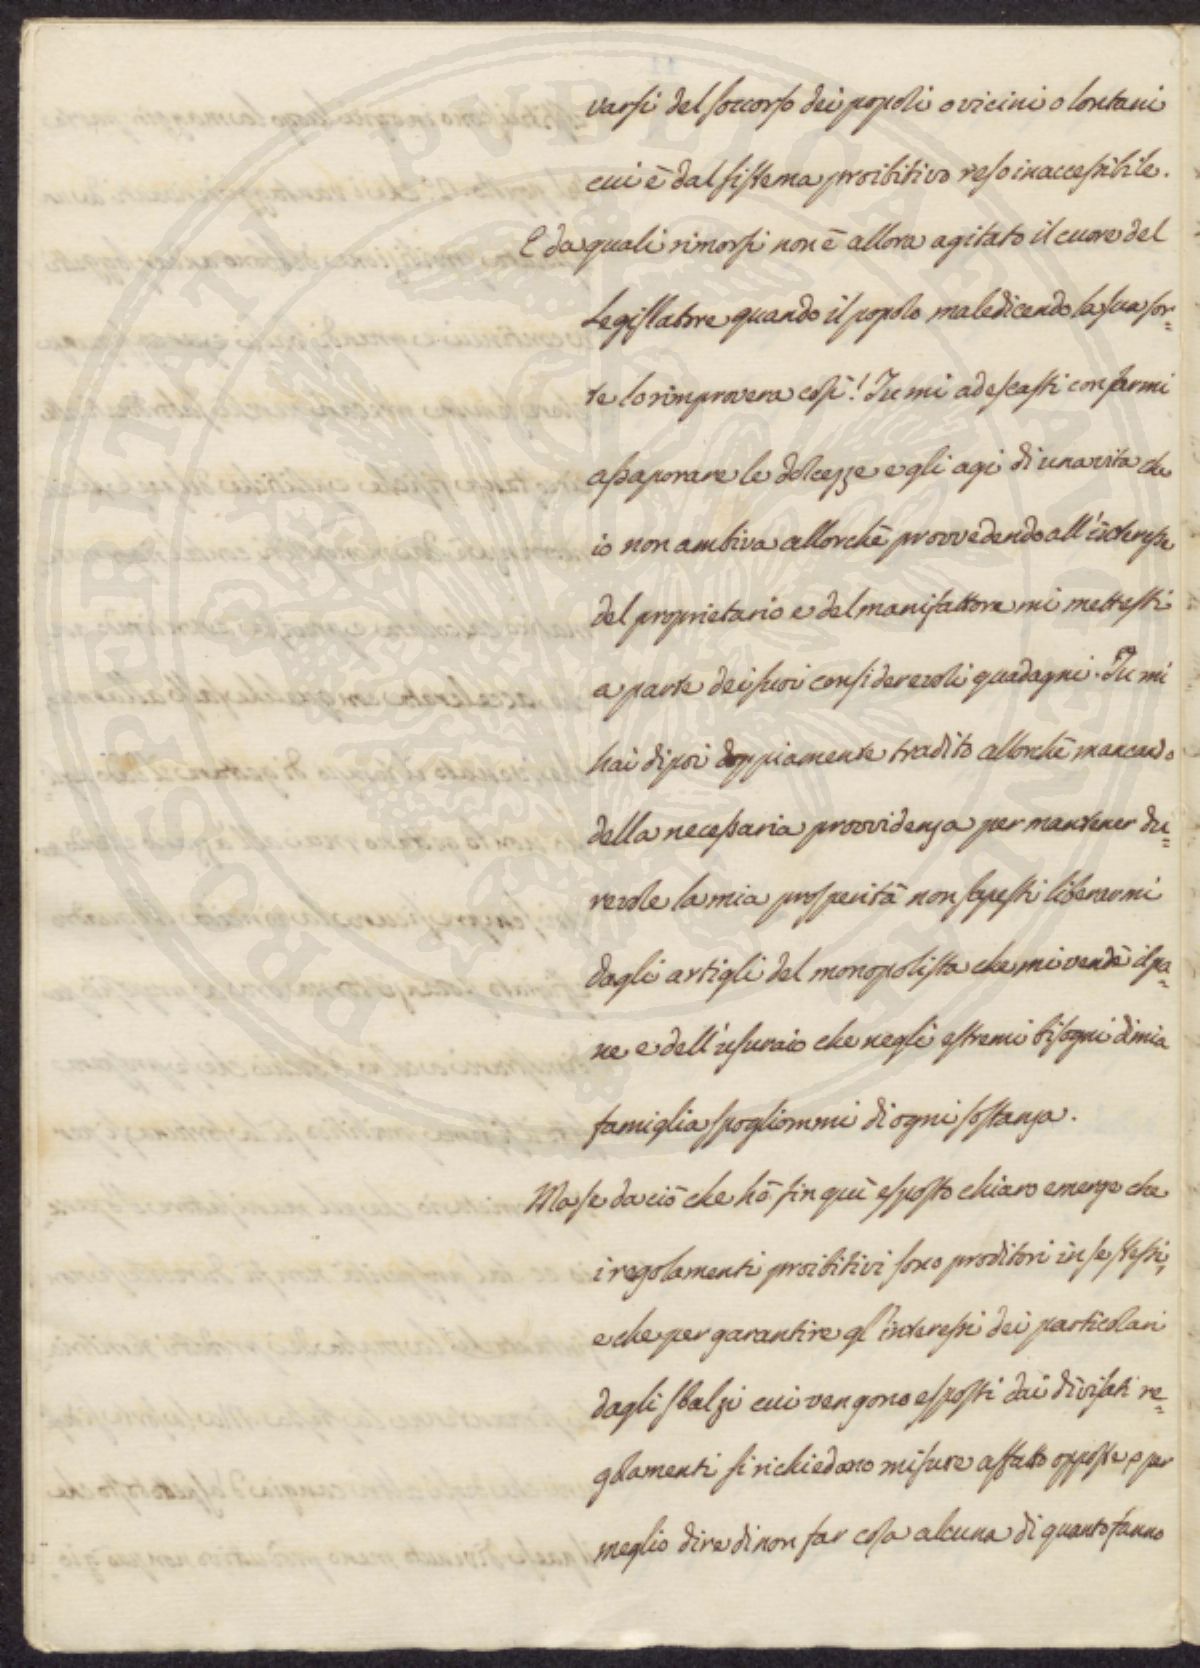 varsi del soccorso dei popoli o vicini o lontani
cui è dal sistema proibitivo reso inaccessibile.
E da quali rimorsi non è allora agitato il cuore del
Legislatore quando il popolo maledicendo la sua sor=
te lo rimprovera così! Tu mi adescasti con farmi
assaporare le dolcezze e gli agi di una vita che
io non ambiva allorchè provvedendo all'interesse
del proprietario e del manifattore mi mettesti
a parte dei suoi considerevoli guadagni. Tu mi
hai dipoi doppiamente tradito allorchè mancando
della necessaria provvidenza per mantener du=
revole la mia prosperità non sapesti liberarmi
dagli artigli del monopolista che mi vendè il pa=
ne e dell'usuraio che negli estremi bisogni di mia
famiglia spogliommi di ogni sostanza.
Ma se da ciò che hò fin quì esposto chiaro emerge che
i regolamenti proibitivi sono proditori in se stessi,
e che per garantire gl'interessi dei particolari
dagli sbalzi cui vengono esposti dai divisati re=
golamenti si richiedono misure affatto opposte o per
meglio dire di non far cosa alcuna di quanto fanno
PROSPERITATI PUBLICAE AUGENDAE